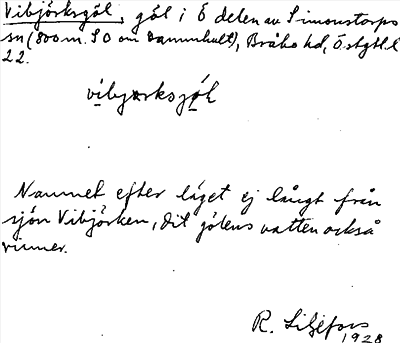 Vibjörksgöl, göl i Ö delen av Simonstorps
sn (800 m. SO om Dammhult), Bråbo hd, Östgtl. l
22.
vibjörksjöl
Namnet efter läget ej långt från
sjön Vibjörken, dit gölens vatten också
rinner.
R. Liljefors
1928